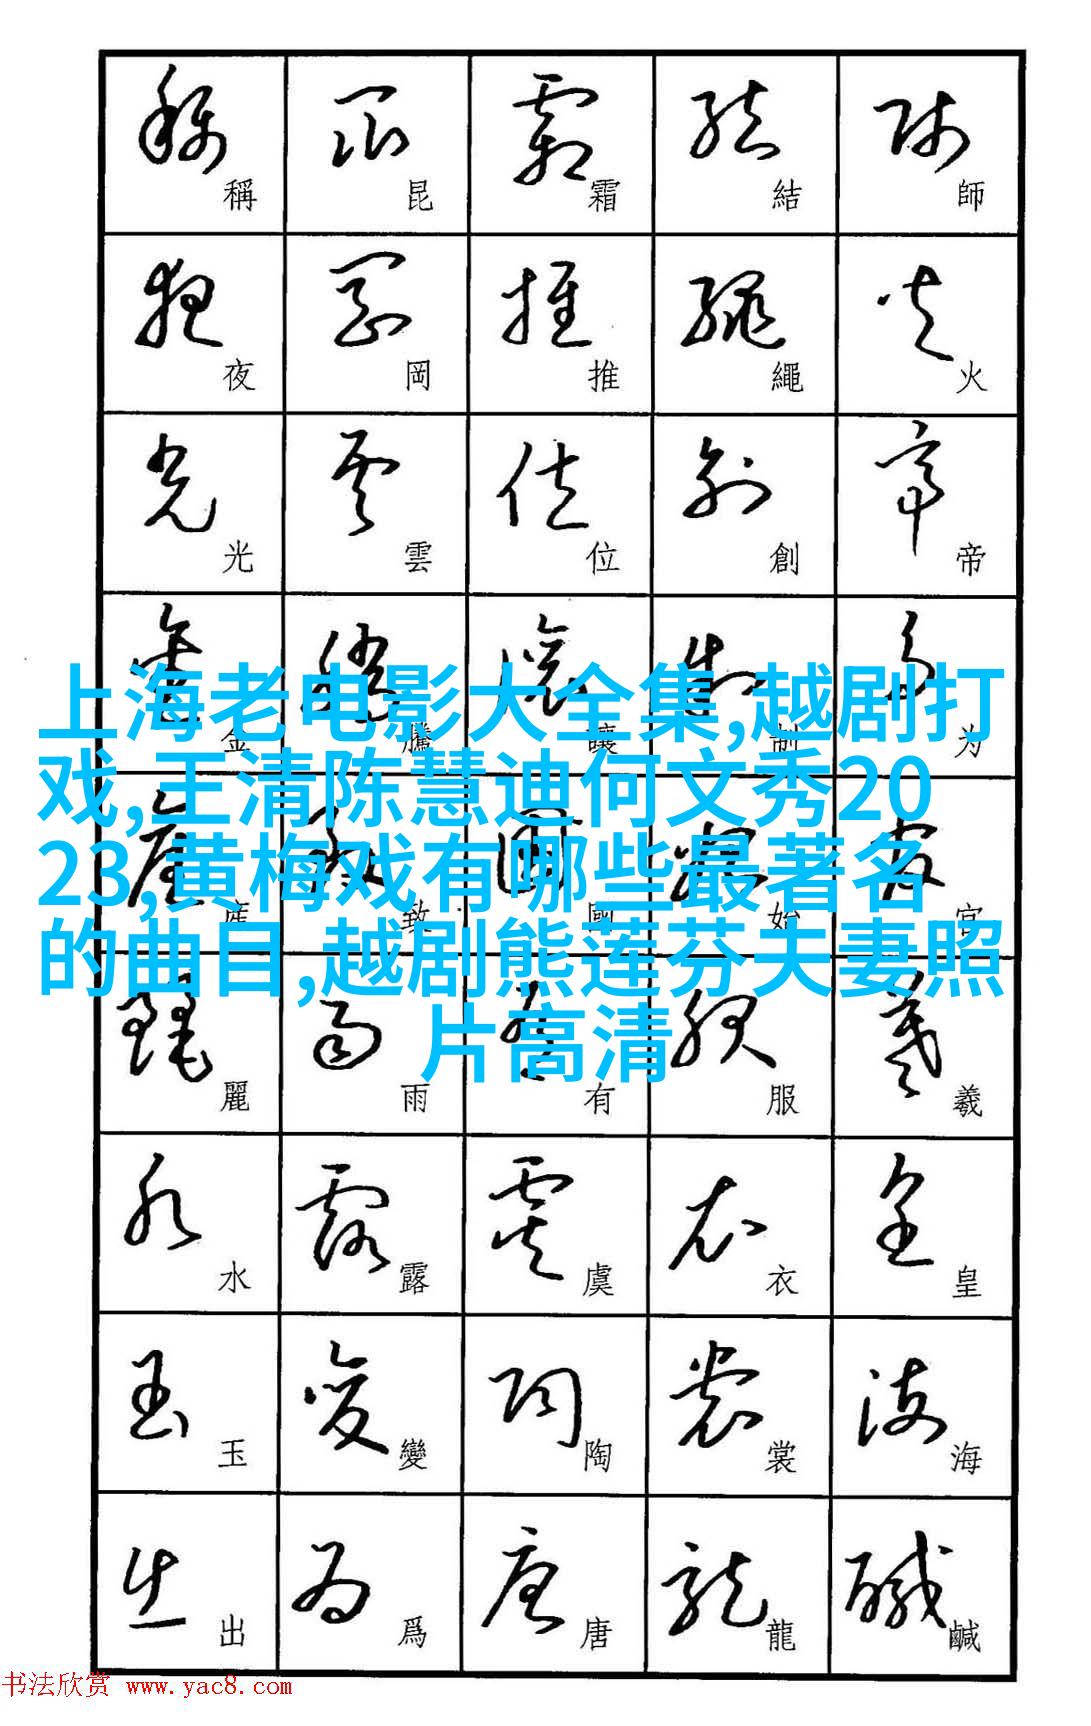 稱 昆 霜 結 師
夜 岡 推 繩 火
光 雲 位 創 帝
上海老电影大全集,越剧打
金 騰 讓 制 为
戏,王清陈慧迪何文秀20
23,黄梅戏有哪些最著名
致 國 始 官
的曲目,越剧熊莲芬夫妻照
片高清
麗 雨 有 服 羲
水 露 虞 衣 皇
玉 變 陶 裳 海
出 爲 唐 龍 鹹
书法欣赏 www.yac8.com